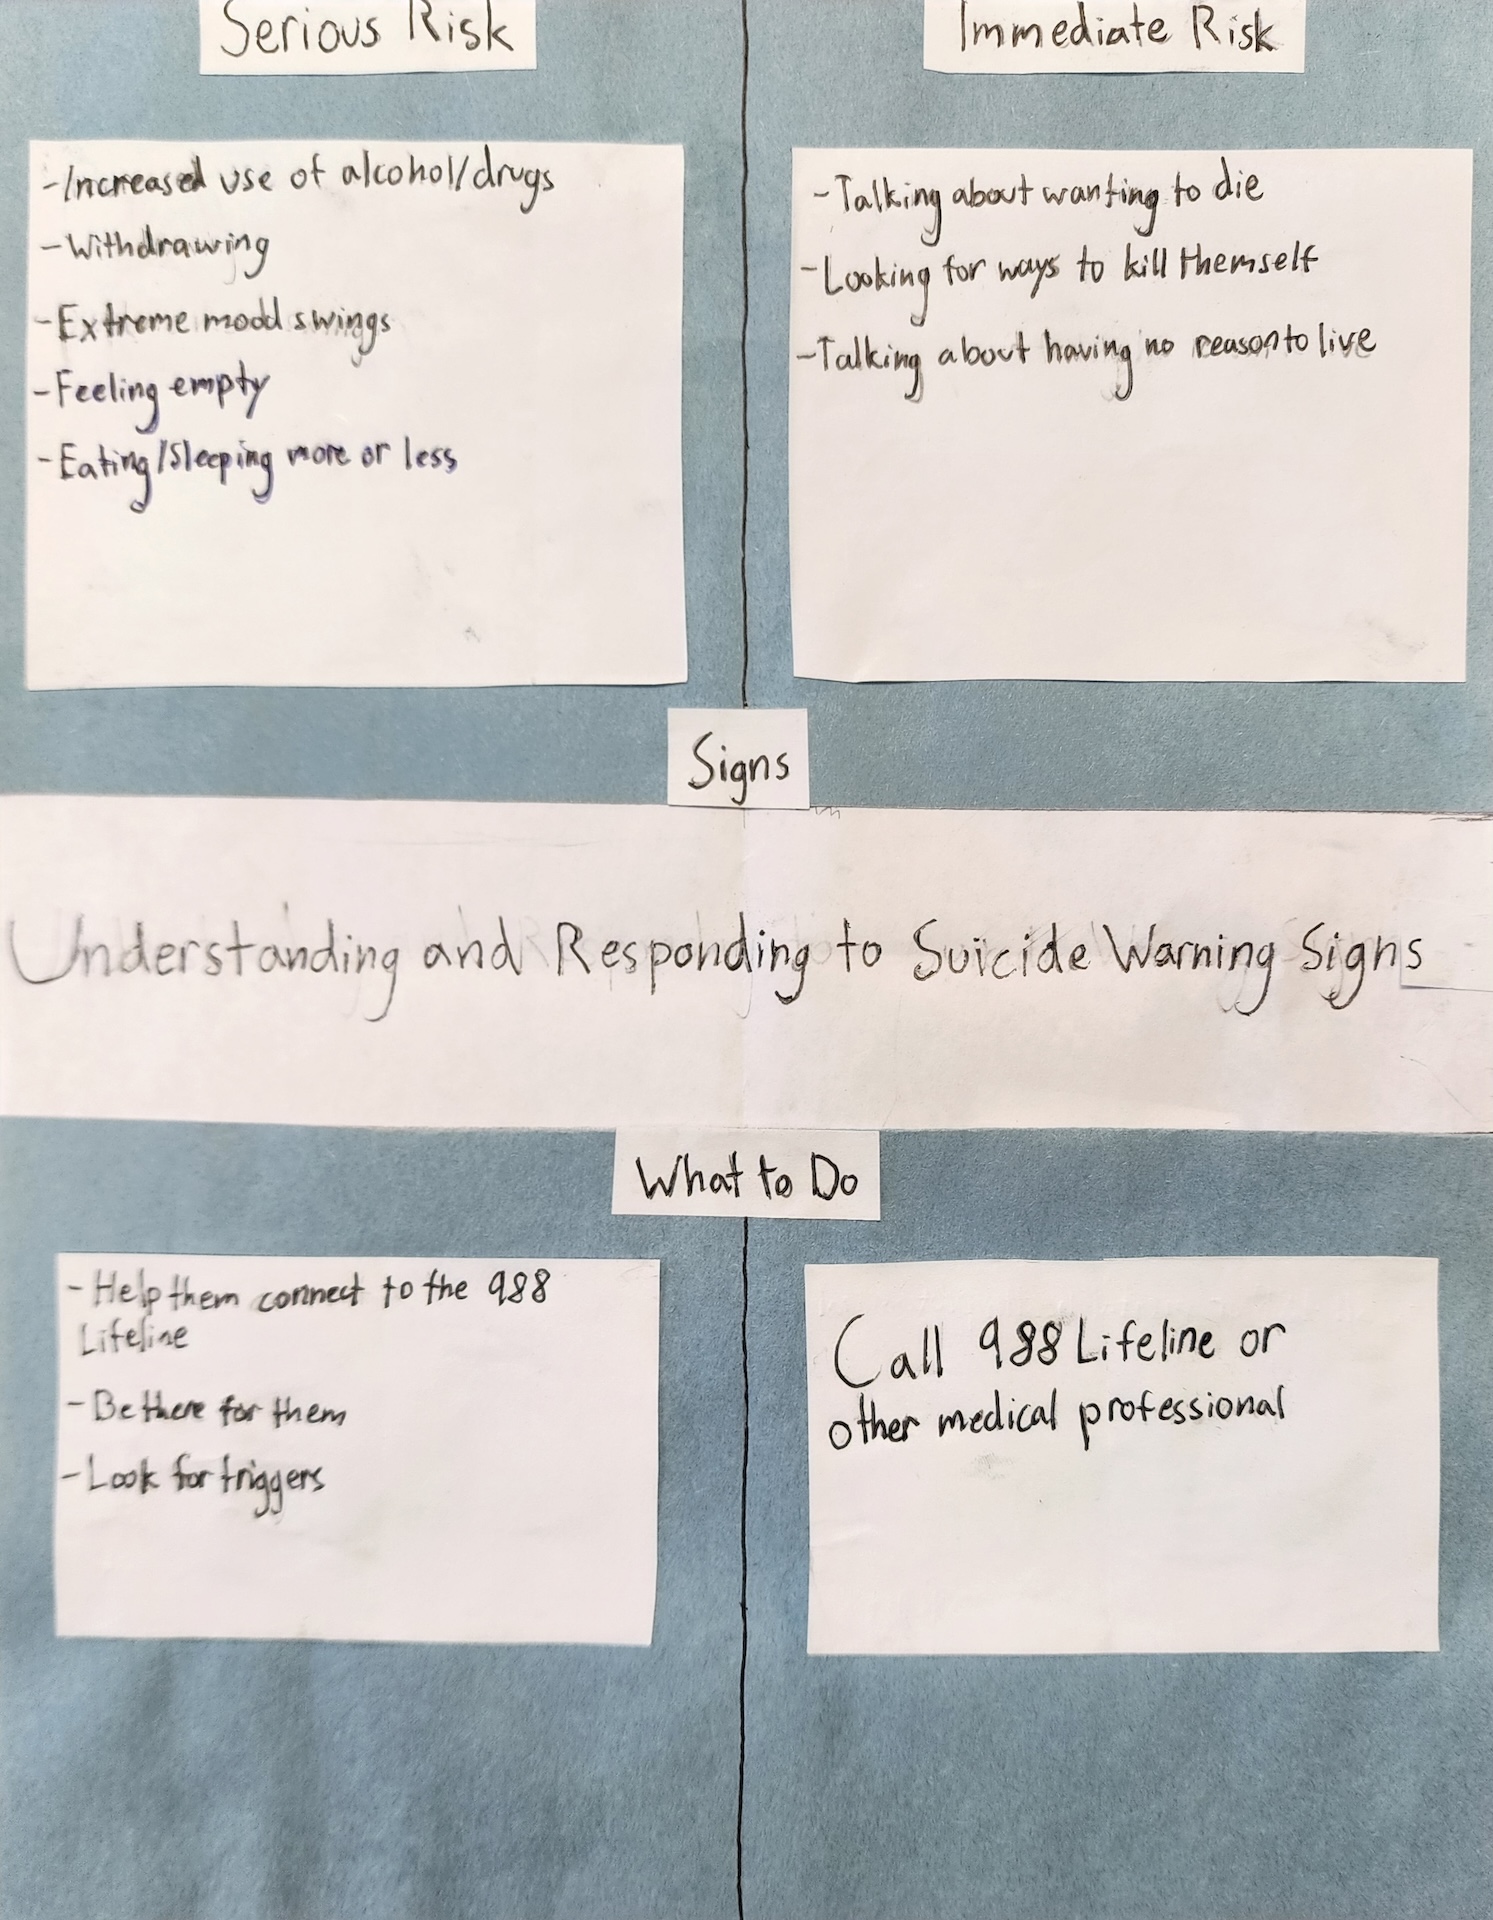 Serious Risk
Immediate Risk
-Increased use of alcohol/drugs
-Withdrawing
-Extreme mood swings
-Feeling empty
-Eating/Sleeping more or less
-Talking about wanting to die
-Looking for ways to kill themself
-Talking about having no reason to live
Signs
Understanding and Responding to Suicide Warning Signs
What to Do
-Help them connect to the 988
Lifeline
-Be there for them
-Look for triggers
Call 988 Lifeline or
other medical professional